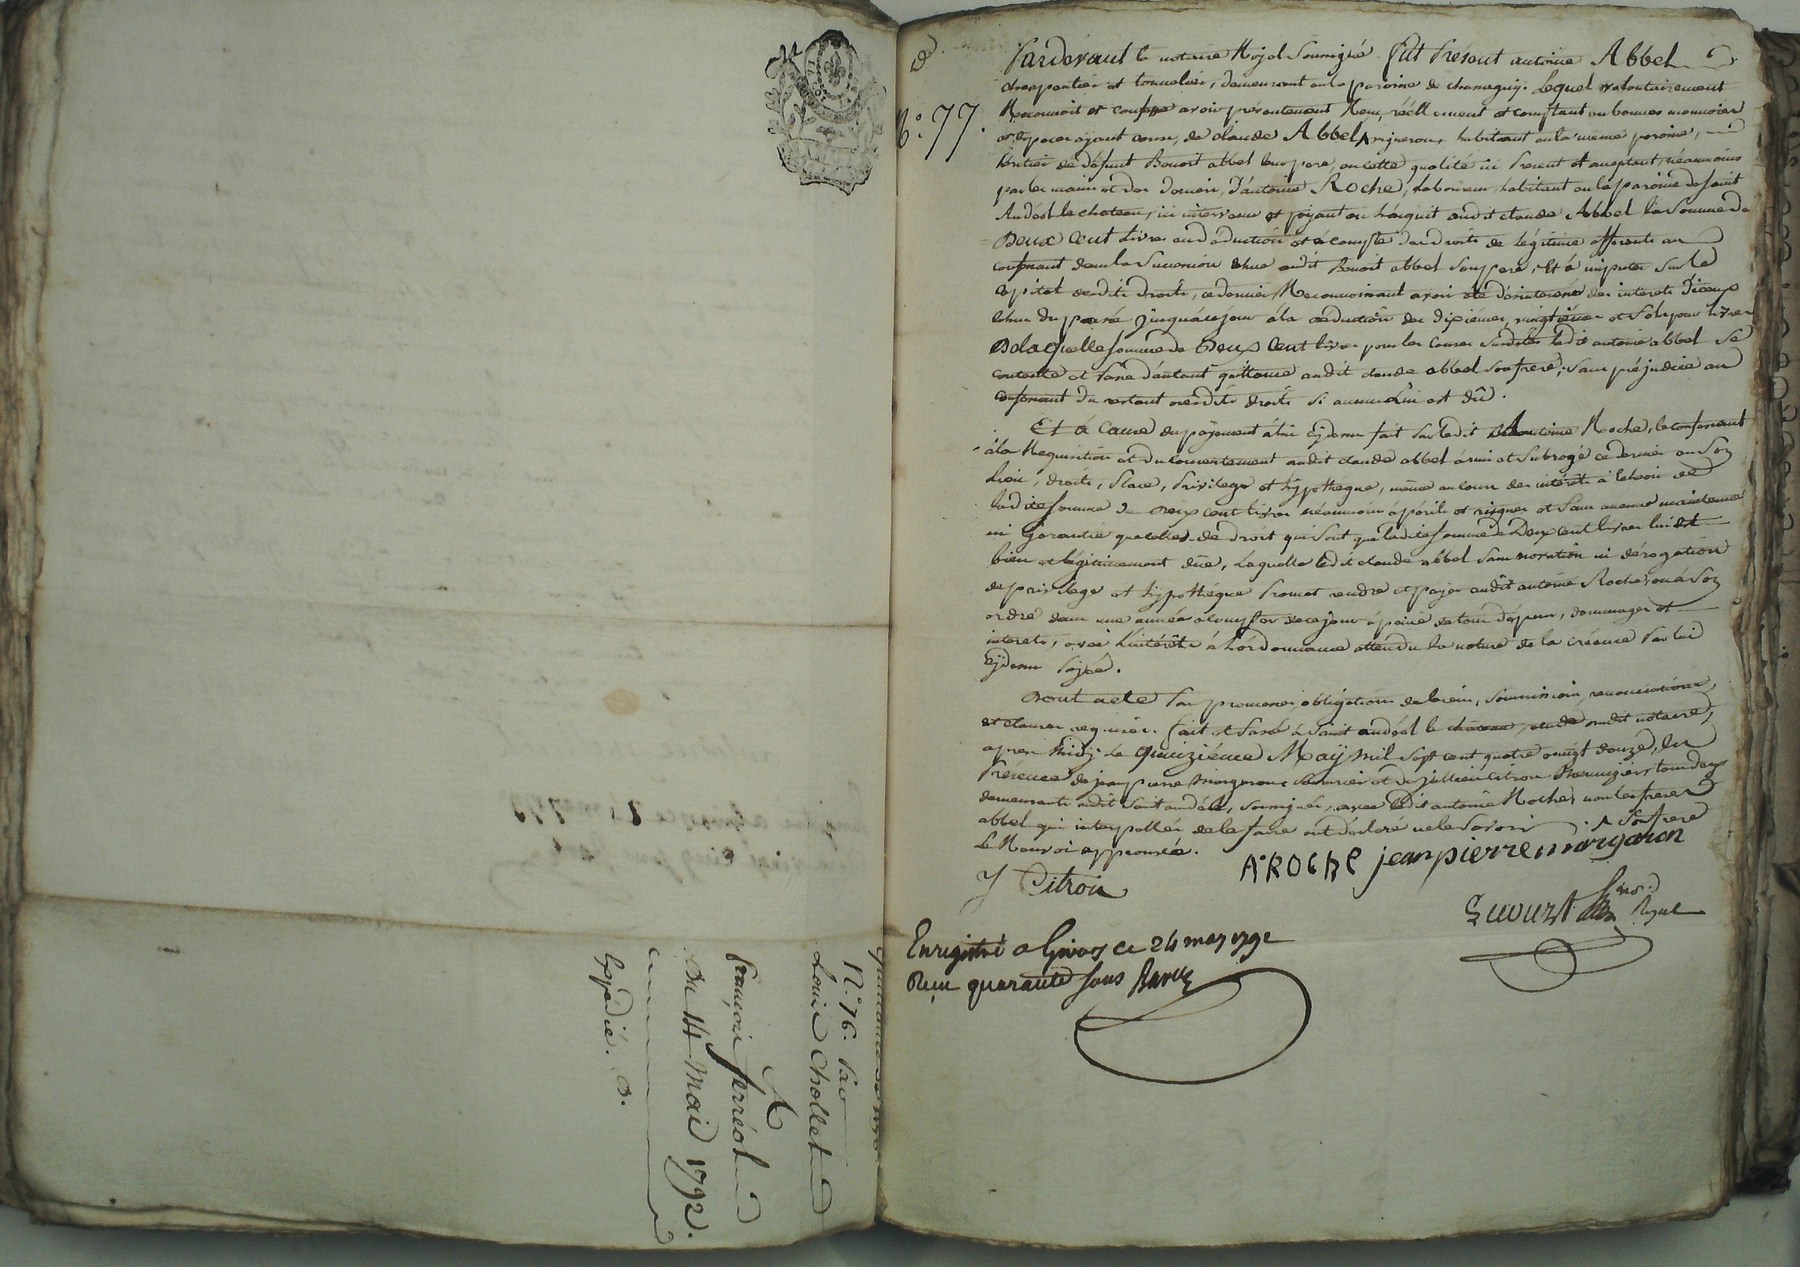 quittance de 
N.° 76. Par
Louis Chollet
A
françois ferréol
Du 14 Mai 1792.
Expédié.
N.° 77.
Pardevant le notaire Royal Soussigné fut Présent antoine Abbel
charpentier et tonnelier, demeurant en la paroisse de chassagny. Lequel volontairement
Reconnoit et confesse avoir présentement Reçu, réèllement et comptant en bonnes monnoies
et espèces ayant cours, de claude Abbel ^ vigneron, habitant en la même paroisse,
héritier de défunt Benoit abbel leur pere, en cette qualité ici Present et acceptant, néanmoins
par les mains et des deniers, d'antoine Roche, laboureur habitant en la paroisse de saint
Andéol le chateau, ici intervenu et payant en l'acquit audit claude Abbel la Somme de
Deux Cent Livres en déduction et à compte des droits de légitime afferents au
confessant dans la Succession échue audit Benoit abbel Son pere, Et à imputer Sur le
capital desdits droits, ce dernier Reconnoissant avoir été désinteressé des interets d'iceux
échus du passé jusqu'à ce jour à la réduction des dixièmes, vingtièmes et Sols pour livres
De laquelle Somme de Deux Cent livres pour les causes Susdites ledit antoine abbel Se
contente et Passe d'autant quittance audit claude abbel Son frere; Sans préjudice au
confessant du restant desdits droits Si aucun Lui est dû.
Et à Cause du payement à lui cydessus fait Par ledit Antoine Roche, le confessant
à la Requisition et du consentement audit claude abbel a mis et Subrogé ce dernier en Son
Lieu, droits, Place, Privilege et hypotheque, même au cours des intérêts à échoir de
ladite Somme de Deux cent livres néanmoins à perils et risques et Sans aucune maintenue
ni garantie que celles de droit qui Sont que ladite Somme de Deux cent livres lui est
bien et légitimement dûe, Laquelle ledit claude abbel Sans novation ni dérogation
de privilege et hypothéque Promet rendre et payer audit antoine Roche, ou à Son
ordre dans une année à compter de ce jour à peine de tous dépens, dommages et
interets, avec L'intérêts à L'ordonnance attendu la nature de la créance Par lui
cydessus Payée.
Dont acte Par promesses, obligation de biens, Soumissions, renonciations,
et clauses requises. fait et Passé à Saint andéol le chateau, etude dudit notaire,
apres Midy. Le Quinzième May Mil Sept cent quatre vingt douze, En
Présence de jean pierre Margaron, Serrurier et de jullien Citron
demeurants audit Saint andéol, Soussignés, avec ledit antoine Roche, non les freres
abbel qui interpellés de le faire ont déclaré ne le Savoir. ^ Son frere
Le Renvoi approuvé.
A ROCHE jean pierre margaron
J Citron
Royal
Enregistré a Givors ce 24 may 1792
Reçu quarante sous